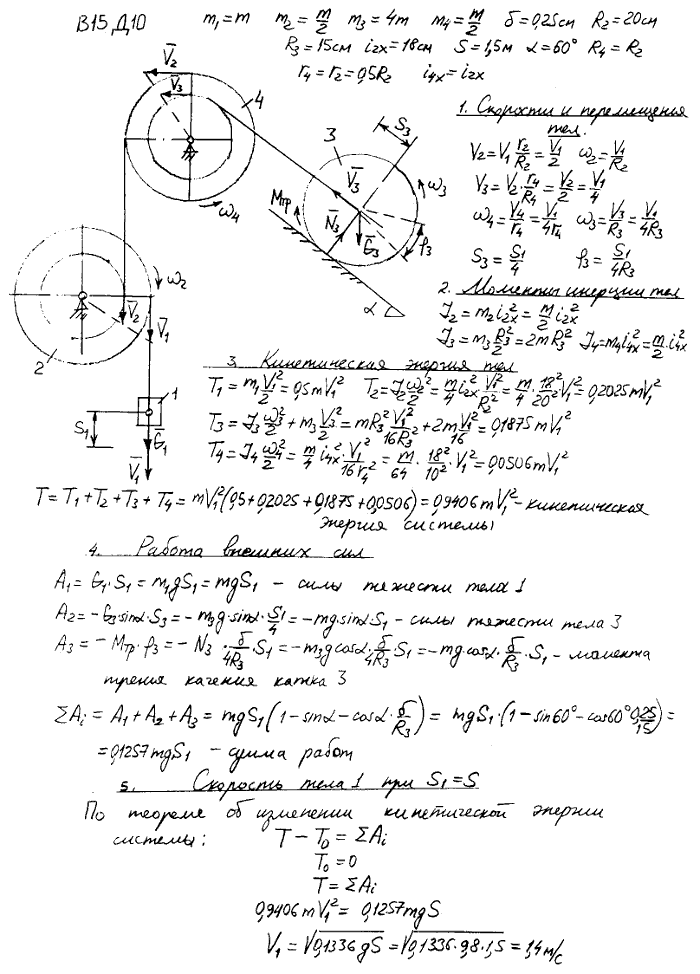 В15,Д10 m₁=m m₂=m/2 m₃=4m m₄=m/2 δ=0,25см R₂=20см
R₃=15см i₂ₓ=18см S=1,5м α=60° R₄=R₂
r₄=r₂=0,5R₂ i₄ₓ=i₂ₓ
V̄₂
V̄₃
4
ω₄
3
S₃
ω₃
V̄₃
Mтр
N̄₃
Ḡ₃
φ₃
α
ω₂
V̄₂
V̄₁
2
1
S₁
Ḡ₁
V̄₁
1. Скорости и перемещения
тел.
V₂=V₁ r₂/R₂=V₁/2 ω₂=V₁/R₂
V₃=V₂·r₄/R₄=V₂/2=V₁/4
ω₄=V₄/r₄=V₁/4r₄ ω₃=V₃/R₃=V₁/4R₃
S₃=S₁/4 φ₃=S₁/4R₃
2. Моменты инерции тел
J₂=m₂i₂ₓ²=m/2 i₂ₓ²
J₃=m₃R₃²/2=2mR₃² J₄=m₄i₄ₓ²=m/2·i₄ₓ²
3. Кинетическая энергия тел
T₁=m₁V₁²/2=0,5mV₁² T₂=J₂ω₂²/2=m/4 i₂ₓ²·V₁²/R₂²=m/4·18²/20² V₁²=0,2025mV₁²
T₃=J₃ω₃²/2+m₃V₃²/2=mR₃²V₁²/16R₃²+2mV₁²/16=0,1875mV₁²
T₄=J₄ω₄²/2=m/4 i₄ₓ²·V₁²/16r₄²=m/64·18²/10²·V₁²=0,0506mV₁²
T=T₁+T₂+T₃+T₄=mV₁²(0,5+0,2025+0,1875+0,0506)=0,9406mV₁²-кинетическая
энергия системы
4. Работа внешних сил
A₁=G₁·S₁=m₁gS₁=mgS₁ - силы тяжести тела 1
A₂=-G₃·sinα·S₃=-m₃g·sinα·S₁/4=-mg·sinα·S₁-силы тяжести тела 3
A₃=-Mтр·φ₃=-N₃·δ/4R₃·S₁=-m₃g·cosα·δ/4R₃·S₁=-mg·cosα·δ/R₃·S₁-момента
трения качения катка 3
ΣAᵢ=A₁+A₂+A₃=mgS₁(1-sinα-cosα·δ/R₃)=mgS₁·(1-sin60°-cos60°·0,25/15)=
=0,1257mgS₁ - сумма работ
5. Скорость тела 1 при S₁=S
По теореме об изменении кинетической энергии
системы: T-T₀=ΣAᵢ
T₀=0
T=ΣAᵢ
0,9406mV₁²=0,1257mgS
V₁=√0,1336gS=√0,1336·9,8·1,5=1,4м/с